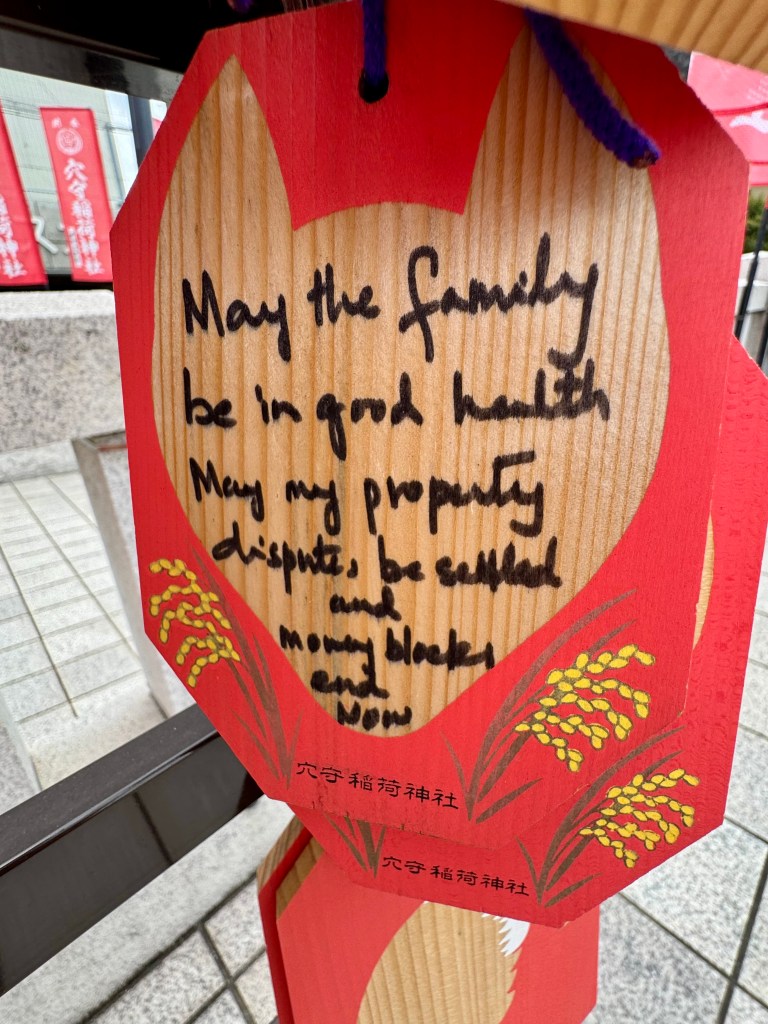 May the family
be in good health
May my property
disputes be settled
and
money blocks
end
Now
穴守稲荷神社
穴守稲荷神社
穴守稲荷神社